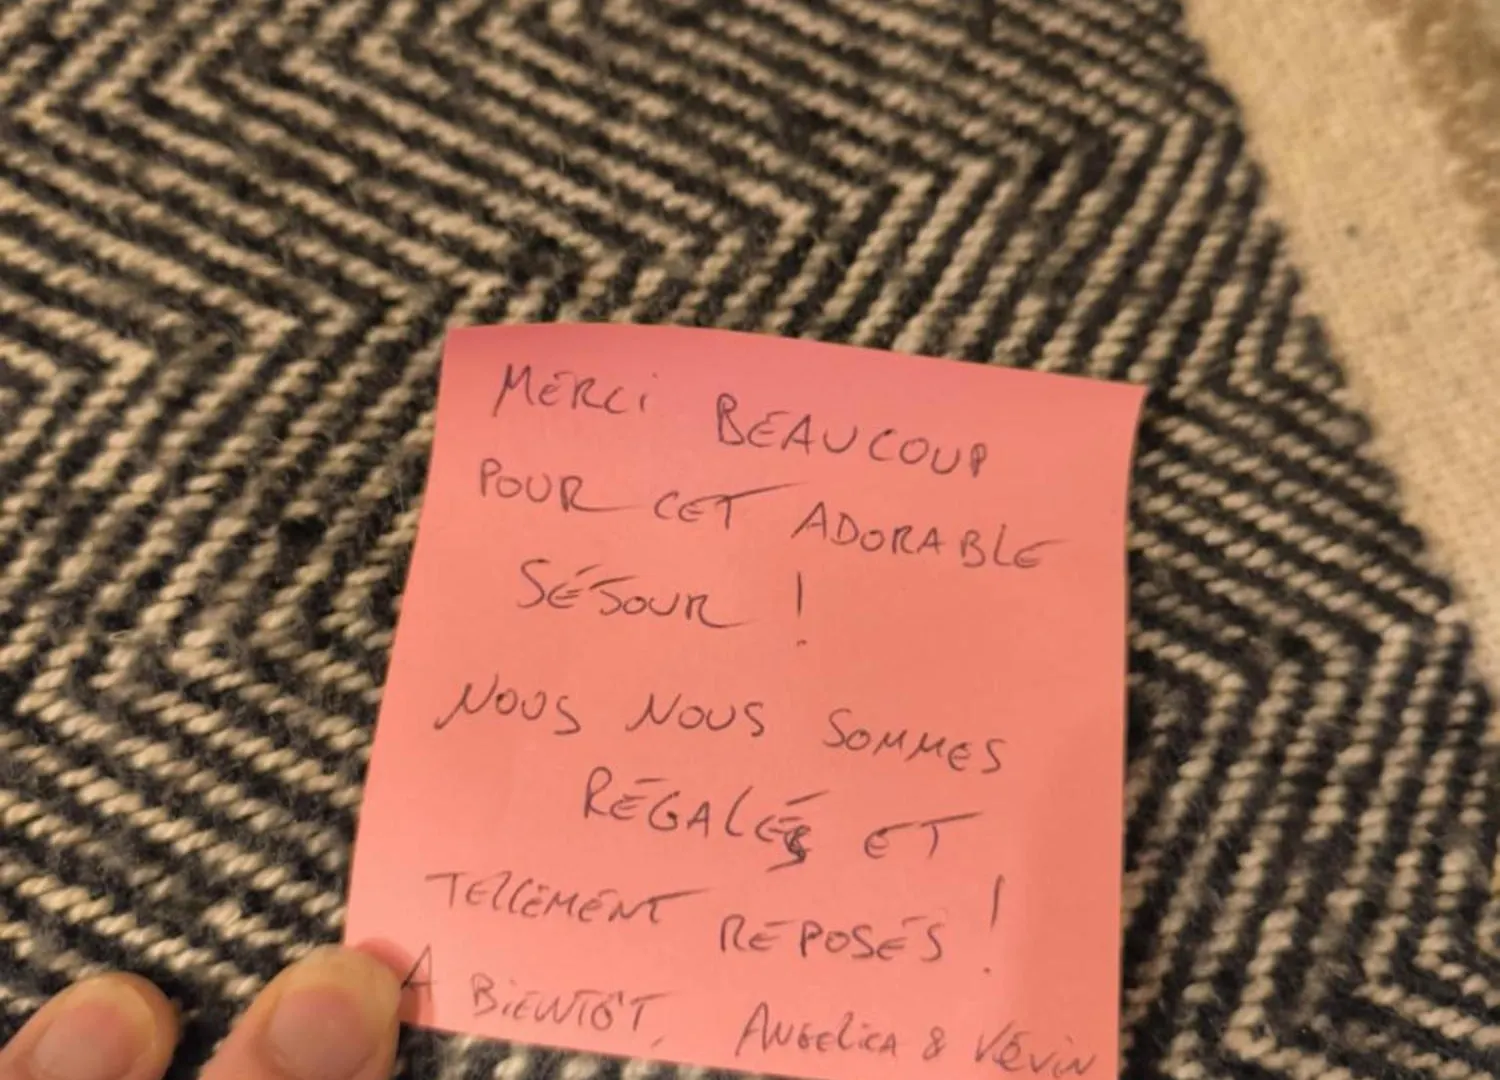 MERCi BEAUCOUP
POUR CET ADORABLE
SÉJOUR !
NOUS NOUS SOMMES
RÉGALÉS ET
TELLEMENT REPOSÉS !
A BiENTÔT, ANGELiCA & KÉViN